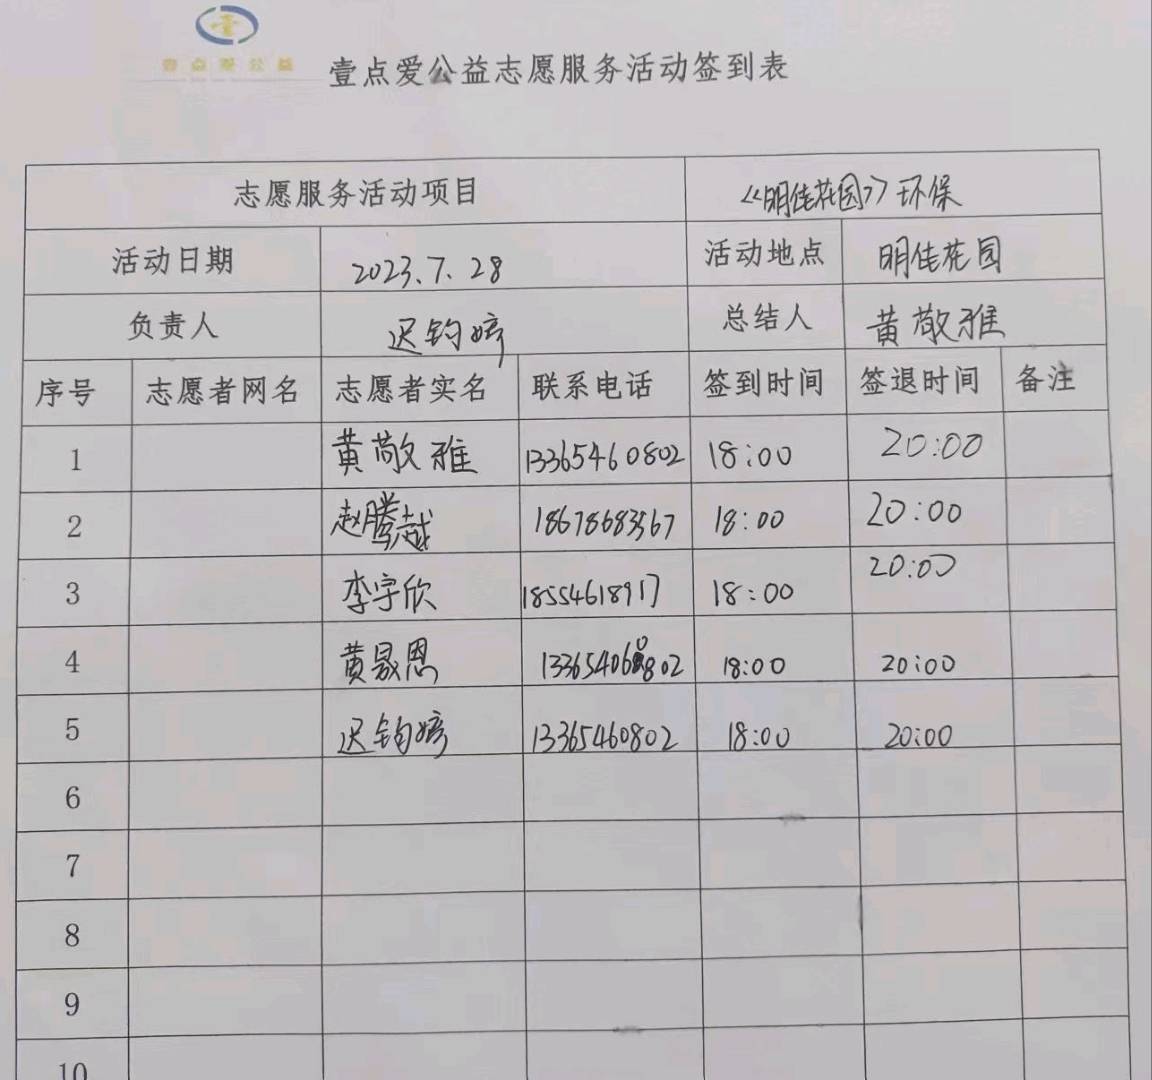 壹点爱公益
壹点爱公益志愿服务活动签到表
志愿服务活动项目 《明佳花园》环保
活动日期 2023.7.28 活动地点 明佳花园
负责人 迟钧婷 总结人 黄敬雅
序号 志愿者网名 志愿者实名 联系电话 签到时间 签退时间 备注
1 黄敬雅 13365460802 18:00 20:00
2 赵腾越 18678683567 18:00 20:00
3 李宇欣 18554618917 18:00 20:00
4 黄晟恩 18:00 20:00
5 迟钧婷 13365460802 18:00 20:00
6
7
8
9
10